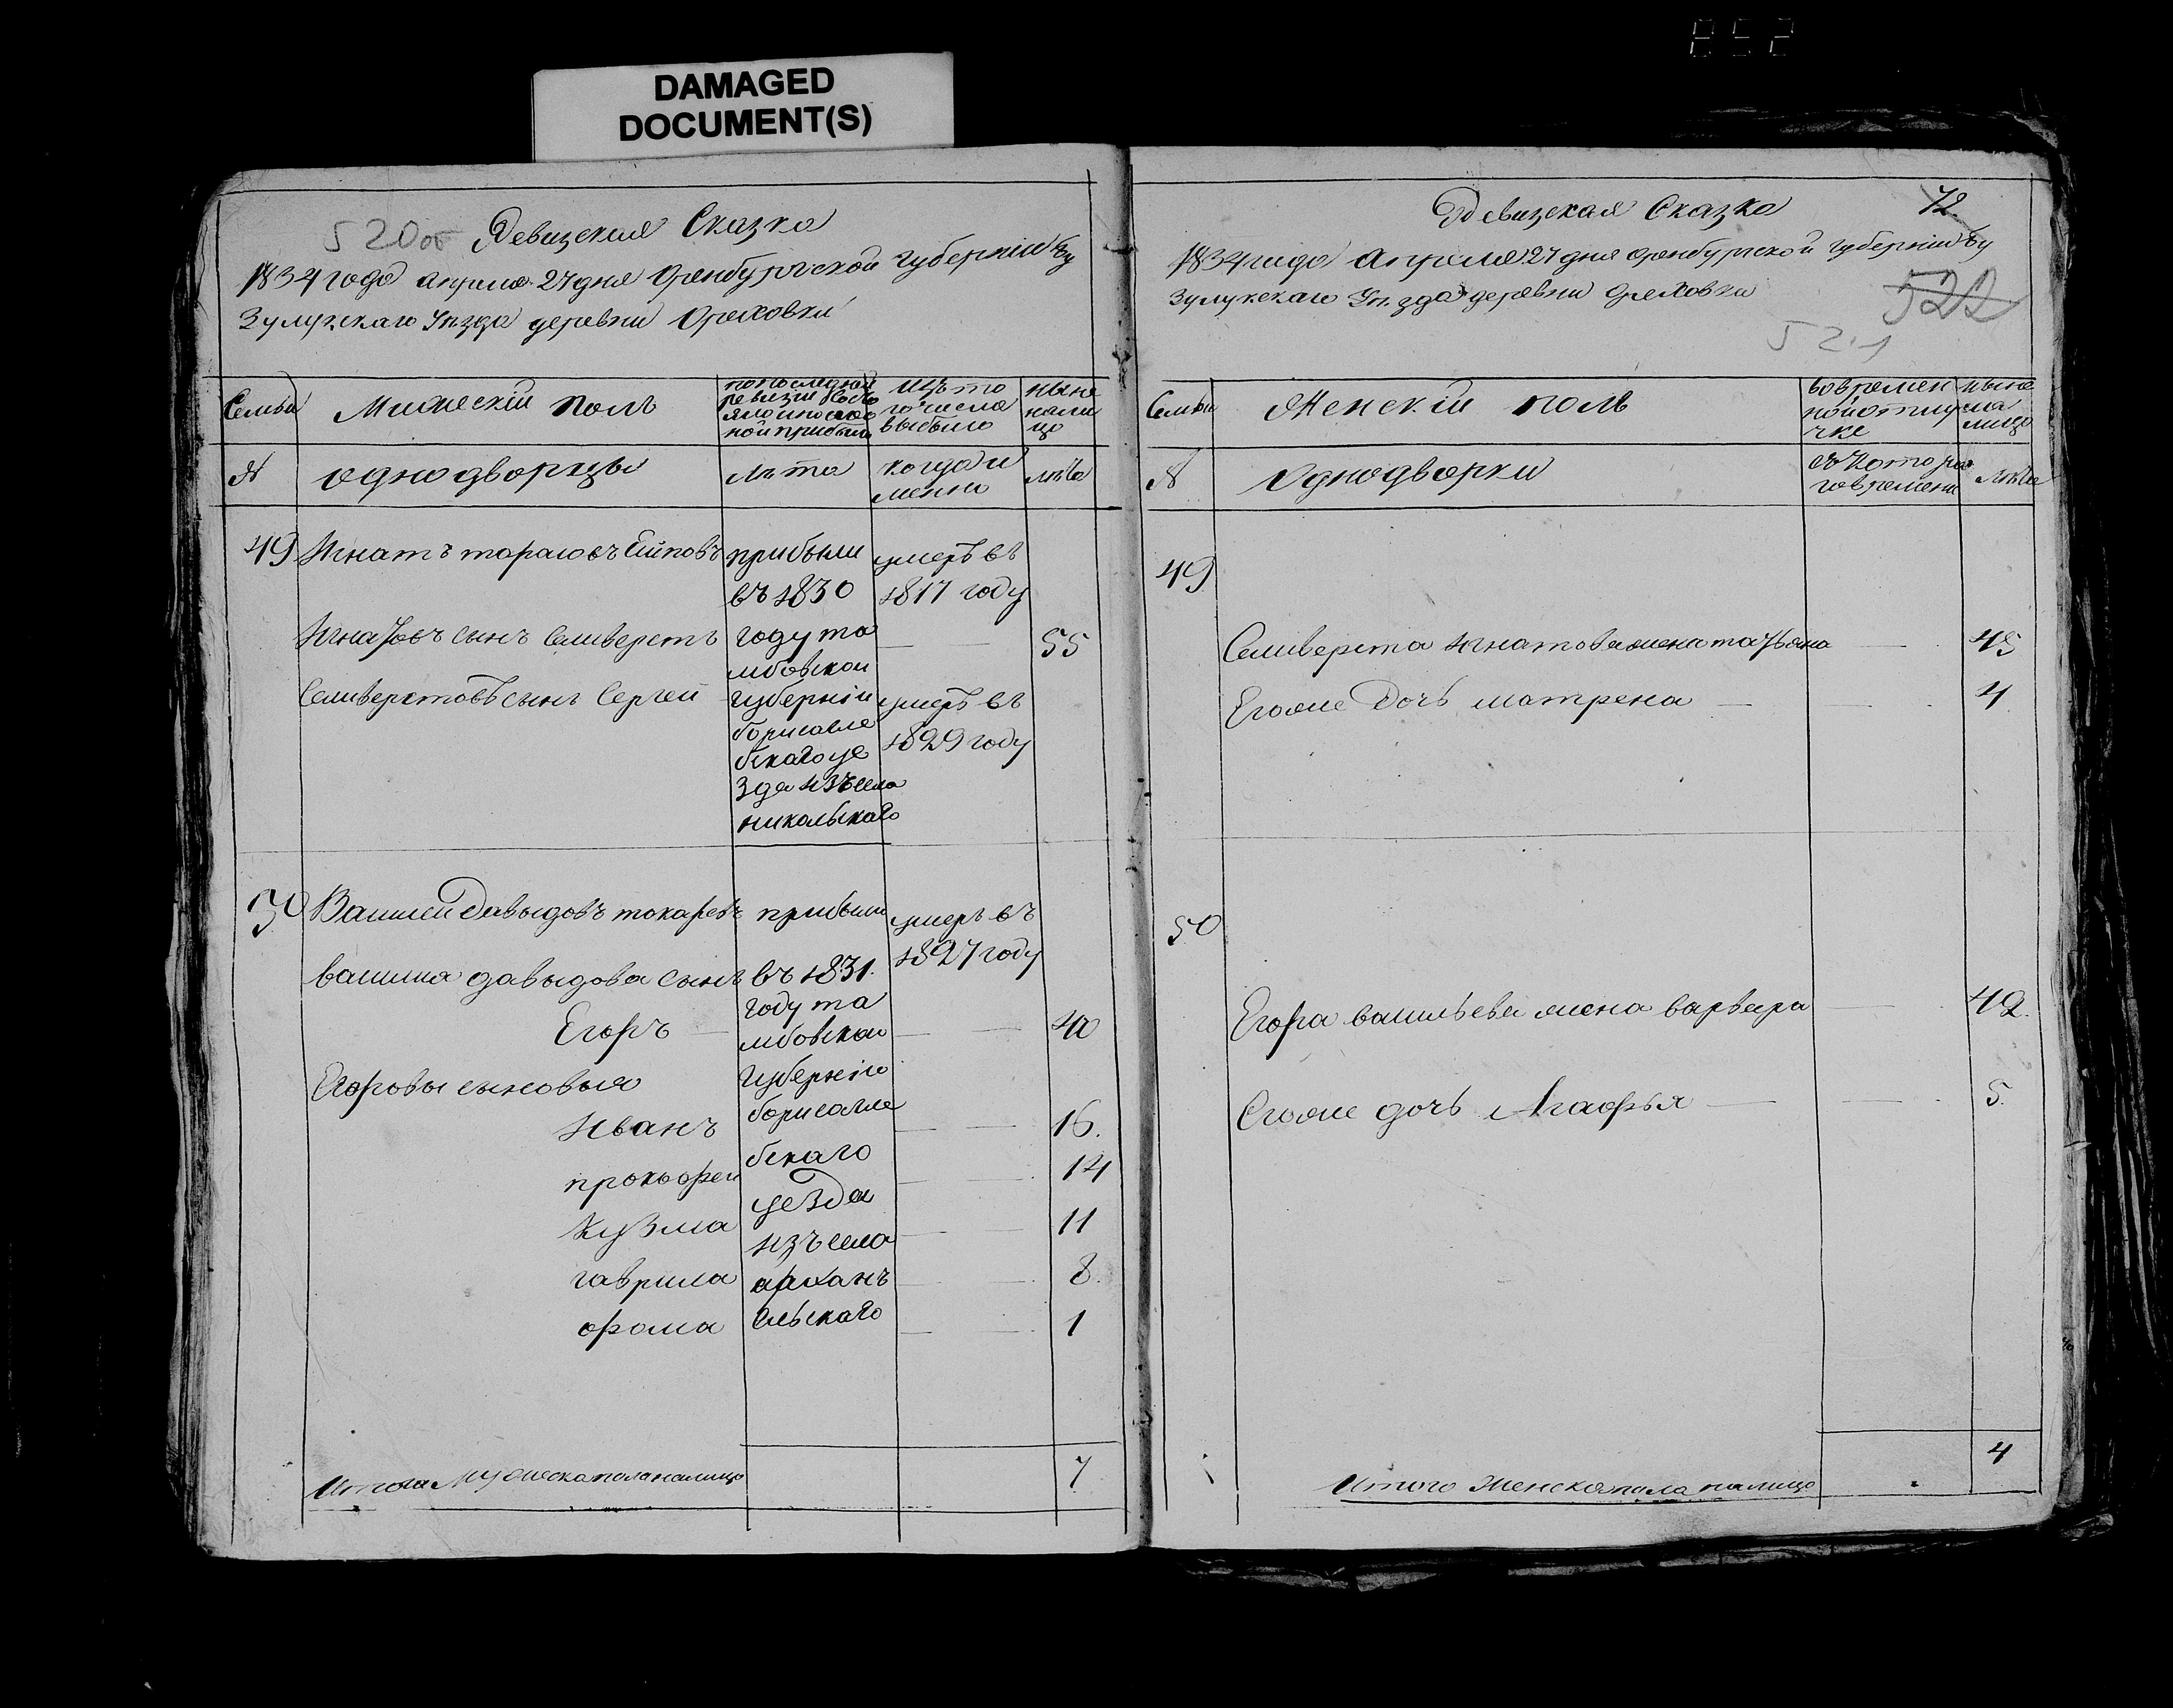 852
DAMAGED
DOCUMENT(S)
520об Ревизская Сказка
1834 года апреля 27 дня Оренбургской губерніи Бу
Зулукскаго Уѣзда деревни Ореховки
Семьи
Мужескій полъ
по последней
ревизіи состо
яло и после
ной прибыло
Изъ то
го числа
выбыло
ныне
нали
цо
№
однодворцы
Лѣта
когда и
менно
лѣта
49 Игнатъ тарасовъ
прибыли
въ 1830
году та
мбовской
губерніи
борисогле
бскаго уе
зда изъ села
никольскаго
умеръ въ
1817 году
Игнатовъ сынъ Селиверстъ
55
Селиверстовъ сынъ Сергей
умеръ въ
1829 году
50 Василей Давыдовъ токаревъ
прибыли
въ 1831.
году та
мбовской
губерніи
борисогле
бскаго
уезда
изъ села
архань
ельскаго
умеръ въ
1827 году
василья давыдова сынъ
Егоръ
40
Егоровы сыновья
Иванъ
16.
прокофеи
14
Кузма
11
гаврила
8.
фома
1
Итога Мужеска пола налицо
7
Ревизская Сказка
72.
1834 года Апреля 27 дня оренбургской губерніи Бу
зулукскаго Уѣзда деревни Ореховки
522
521
Семьи
Женскій полъ
во времен
ной отлу
чке
ныне
на
лицо
№
Однодворки
съ которо
го времени
лѣта
49
Селиверста игнатова жена татьяна
45
Егоже Дочь матрена
4
50
Егора васильева жена варвара
42.
Егоже дочь Агафья
5.
Итого Женска пола налицо
4